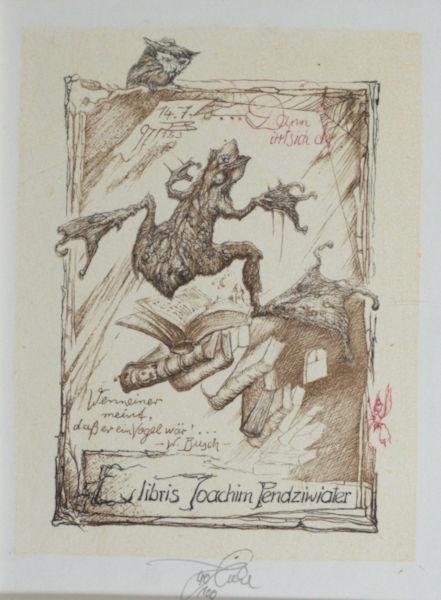 14.7.
Dann
irrt sich der
Wenn einer
meint,
daß er ein Vogel wär'...
- W. Busch -
Exlibris Joachim Pendziwiater